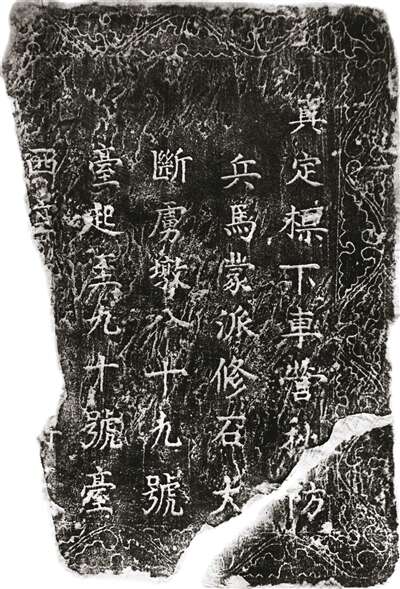 真定標下車營秋防
兵馬蒙派修石大
斷虜墩八十九號
臺起至九十號臺
西